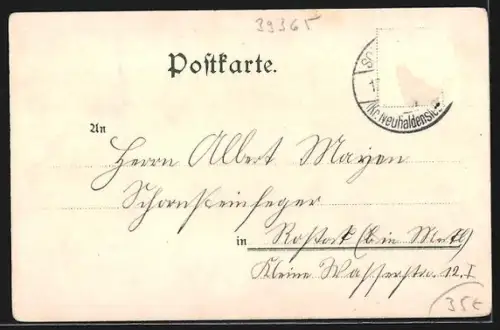 39365
Postkarte.
(Kr. Neuhaldensle
An
Herrn Albert Mayen
Schornsteinfeger
in Rostock (b in Meckl)
Kleine Wasserstr. 12. I
35€